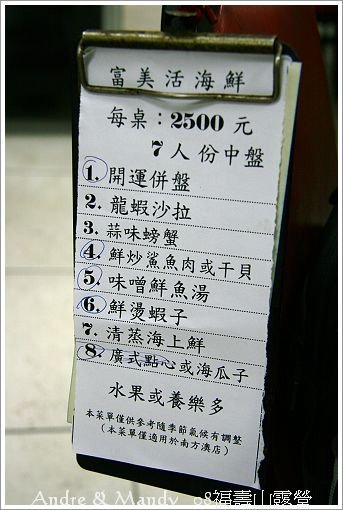 富美活海鮮
每桌：2500 元
7 人份中盤
1. 開運併盤
2. 龍蝦沙拉
3. 蒜味螃蟹
4. 鮮炒鯊魚肉或干貝
5. 味噌鮮魚湯
6. 鮮燙蝦子
7. 清蒸海上鮮
8. 廣式點心或海瓜子
水果或養樂多
本菜單僅供參考隨季節氣候有調整
（本菜單僅適用於南方澳店）
Andre & Mandy 08福壽山露營